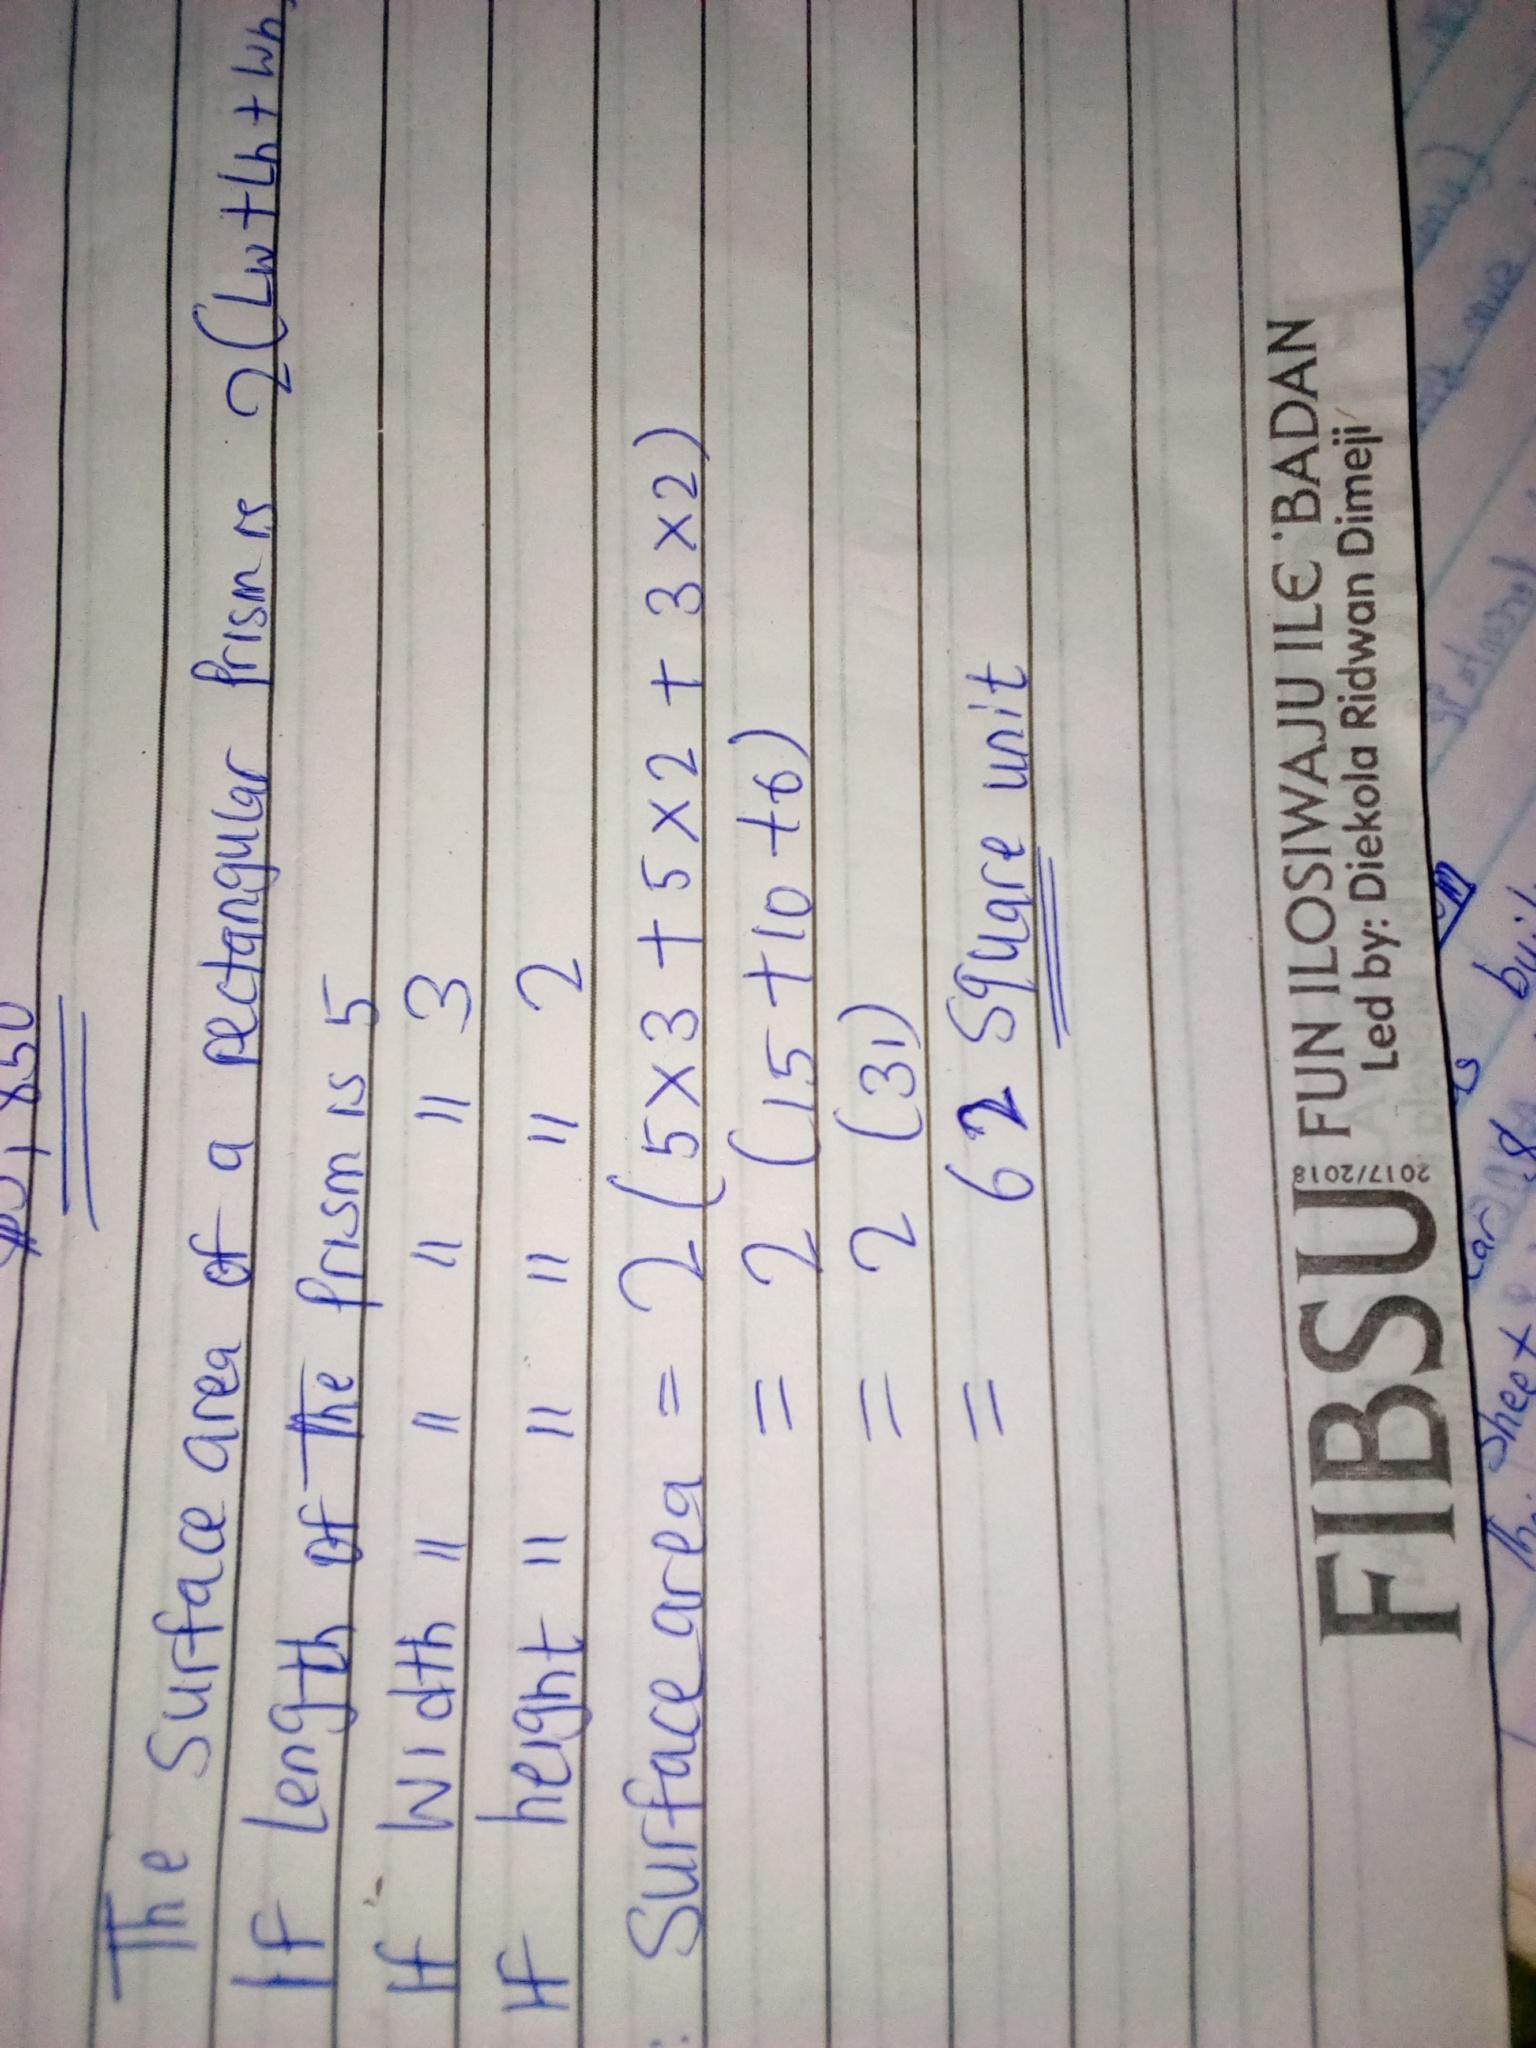 The surface area of a rectangular prism is 2(Lw+Lh+wh
If Length of The prism is 5
If width " " " " 3
If height " " " " 2
: Surface area = 2(5x3 + 5x2 + 3x2)
= 2 (15+10+6)
= 2 (31)
= 62 Square unit
FIBSU 2017/2018 FUN ILOSIWAJU ILE 'BADAN
Led by: Diekola Ridwan Dimeji